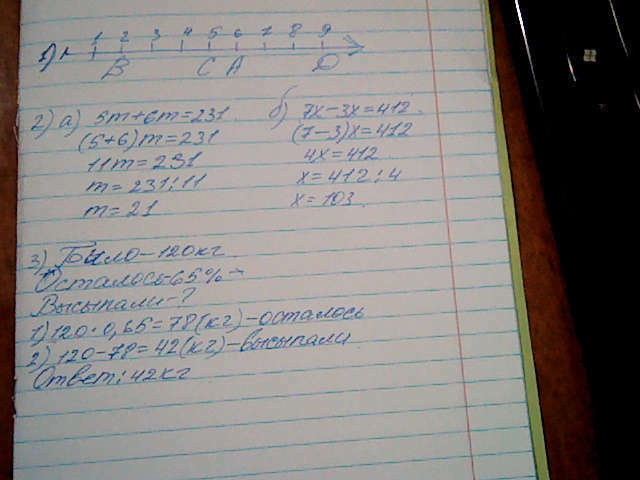 1) 1 2 3 4 5 6 7 8 9
B C A D
2) а) 5m+6m=231. б) 7x-3x=412.
(5+6)m=231 (7-3)x=412
11m=231 4x=412
m=231:11 x=412:4
m=21 x=103.
3) Было-120кг
Осталось-65%-
Высыпали-?
1) 120·0,65=78(кг)-осталось
2) 120-78=42(кг)-высыпали
Ответ: 42кг